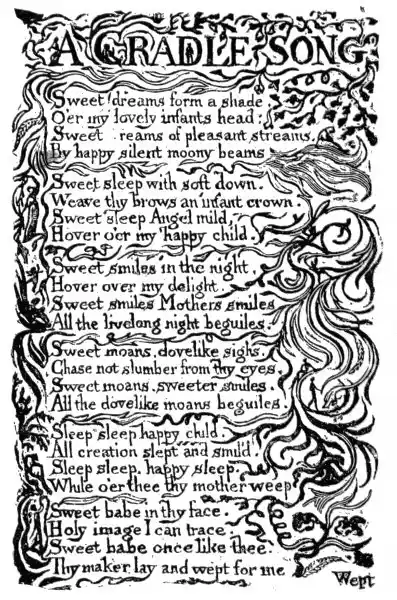 A CRADLE SONG
Sweet dreams form a shade
O'er my lovely infants head:
Sweet reams of pleasant streams.
By happy silent moony beams
Sweet sleep with soft down.
Weave thy brows an infant crown.
Sweet sleep Angel mild,
Hover o'er my happy child.
Sweet smiles in the night,
Hover over my delight.
Sweet smiles Mothers smiles
All the livelong night beguiles.
Sweet moans, dovelike sighs,
Chase not slumber from thy eyes,
Sweet moans, sweeter smiles,
All the dovelike moans beguiles.
Sleep sleep happy child.
All creation slept and smil'd.
Sleep sleep, happy sleep,
While o'er thee thy mother weep
Sweet babe in thy face,
Holy image I can trace.
Sweet babe once like thee.
Thy maker lay and wept for me
Wept